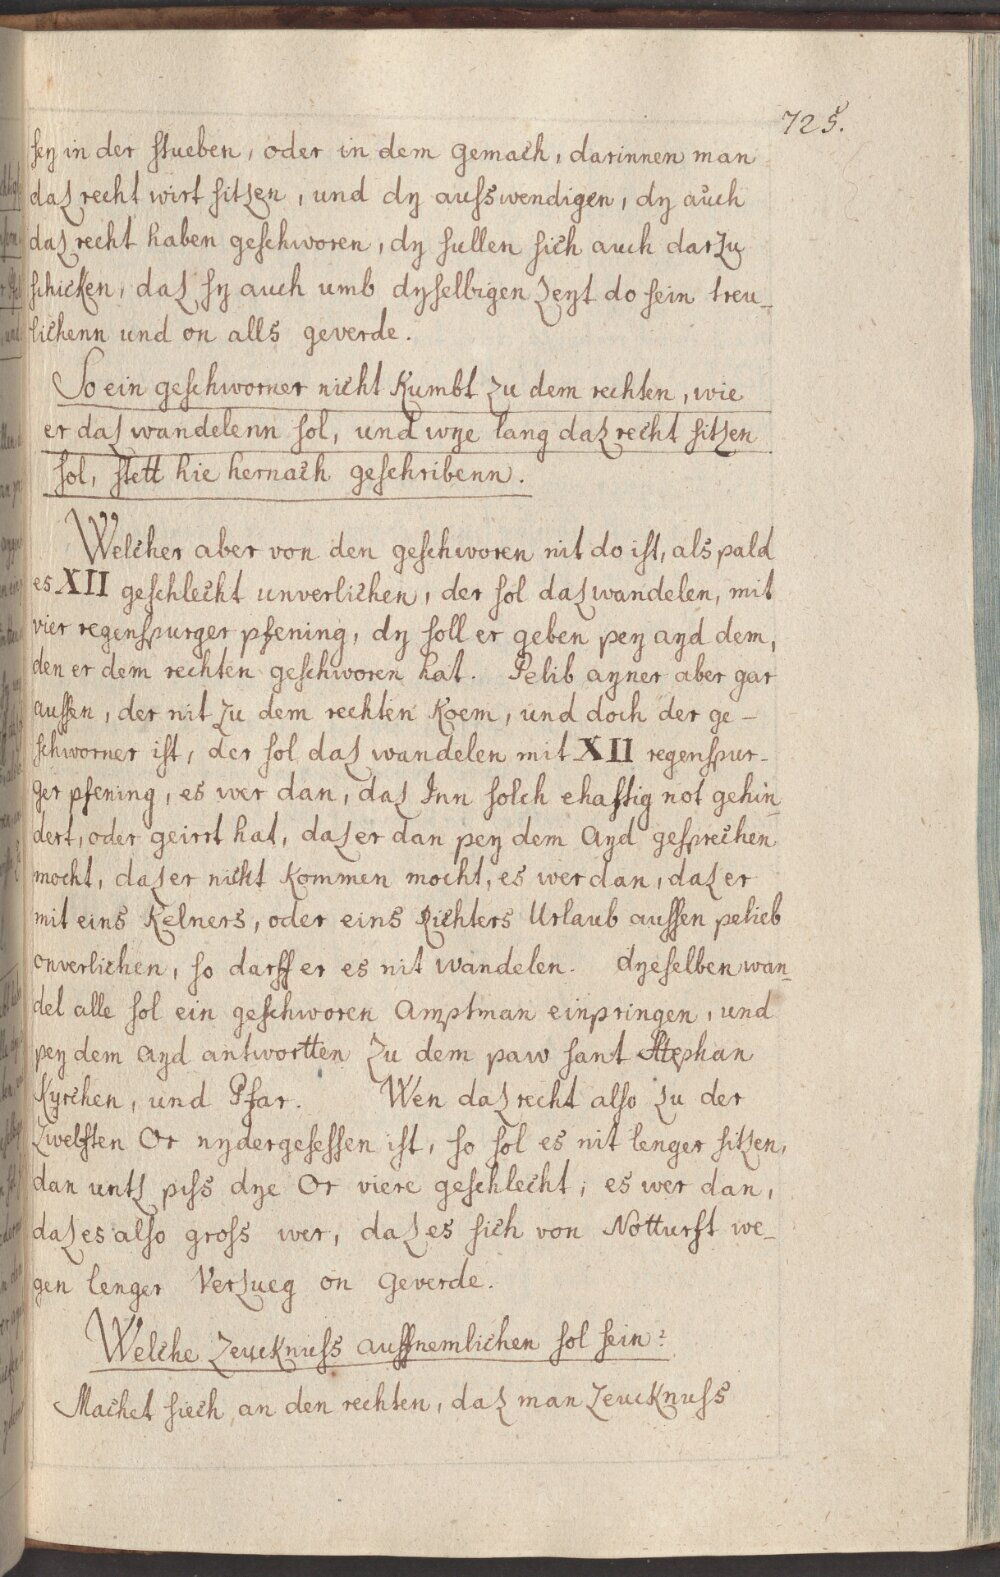 725.
sey in der stueben, oder in dem gemach, darinnen man
daz recht wirt sitzen, und dy ausswendigen, dy auch
daz recht haben geschworen, dy sullen sich auch darzu
schicken, daz sy auch umb dyselbigen Zeyt do sein treu_
lichenn und on alls geverde.
So ein geschworner nicht Kumbt zu dem rechten, wie
er daz wandelenn sol, und wye lang daz recht sitzen
sol, stett hie hernach geschribenn.
Welcher aber von den geschworen nit do ist, als pald
es XII geschlecht unverlichen, der sol daz wandelen, mit
vier regenspurger pfening, dy soll er geben pey ayd dem,
den er dem rechten geschworen hat. Pelib ayner aber gar
aussen, der nit zu dem rechten Koem, und doch der ge-
schworner ist, der sol daz wandelen mit XII regenspur-
ger pfening, es wer dan, daz Inn solch ehaftig not gehin_
dert, oder geirrt hat, daz er dan pey dem Ayd gesprechen
mocht, daz er nicht Kommen mocht, es wer dan, daz er
mit eins Kelners, oder eins Richters Urlaub aussen pelieb
onverlichen, so darff er es nit wandelen. dyeselben wan_
del alle sol ein geschworen Amptman einpringen, und
pey dem Ayd antwortten Zu dem paw sant Stephan
Kyrchen, und Pfar. Wen daz recht also zu der
Zwelften Or nydergesessen ist, so sol es nit lenger sitzen,
dan untz piss dye Or viere geschlecht; es wer dan,
daz es also gross wer, daz es sich von Notturft we_
gen lenger Verzueg on Geverde.
Welche Zeucknuss auffnemlichen sol sein?
Machet siech an den rechten, daz man Zeucknuss